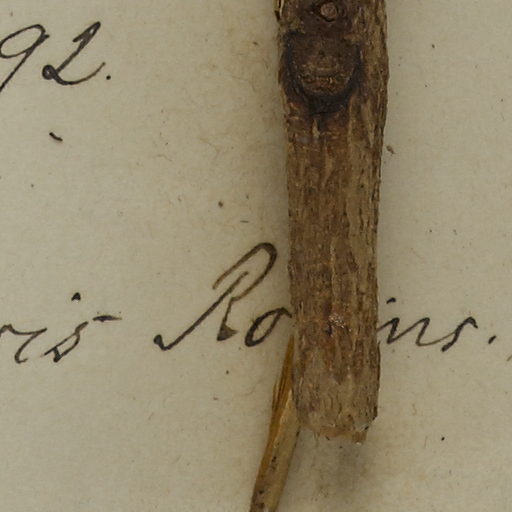 92.
ris Ro ins.